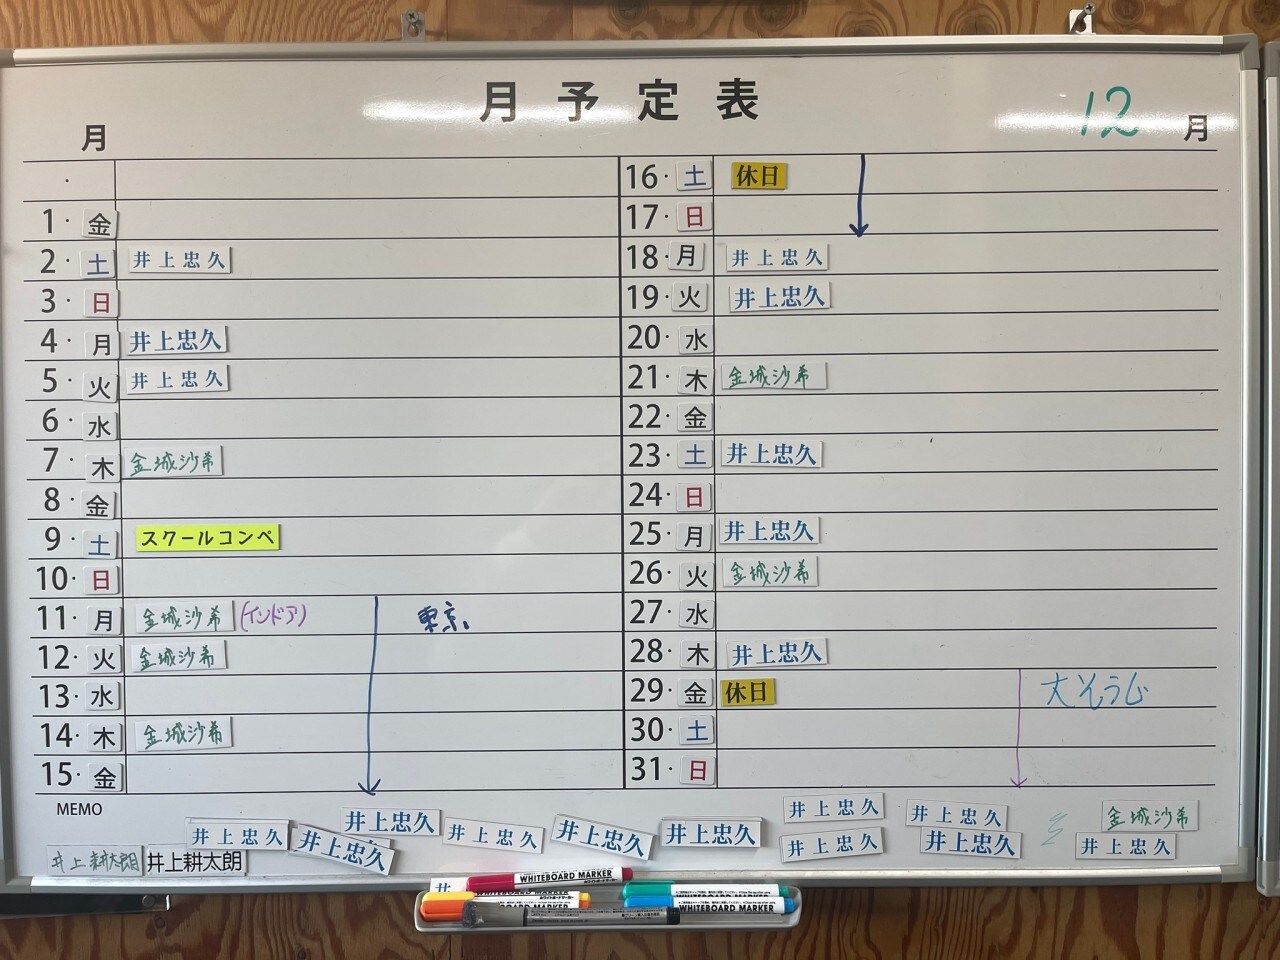 月予定表
12月
月
1・金
2・土 井上忠久
3・日
4・月 井上忠久
5・火 井上忠久
6・水
7・木 金城沙希
8・金
9・土 スクールコンペ
10・日
11・月 金城沙希 (インドア) 東京、
12・火 金城沙希
13・水
14・木 金城沙希
15・金
16・土 休日
17・日
18・月 井上忠久
19・火 井上忠久
20・水
21・木 金城沙希
22・金
23・土 井上忠久
24・日
25・月 井上忠久
26・火 金城沙希
27・水
28・木 井上忠久
29・金 休日 大そうじ
30・土
31・日
MEMO
井上忠久 井上忠久 井上忠久 金城沙希
井上忠久 井上忠久 井上忠久 井上忠久 井上忠久 井上忠久 井上忠久 井上忠久 井上忠久
井上耕太郎 井上耕太朗
井
WHITEBOARD MARKER
WHITEBOARD MARKER